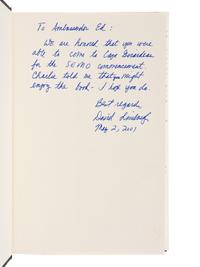 To Ambassador Ed:
We are honored that you were
able to come to Cape Girardeau
for the SEMO commencement.
Charlie told me that you might
enjoy the book - I hope you do.
Best regards,
David Limbaugh
May 2, 2001